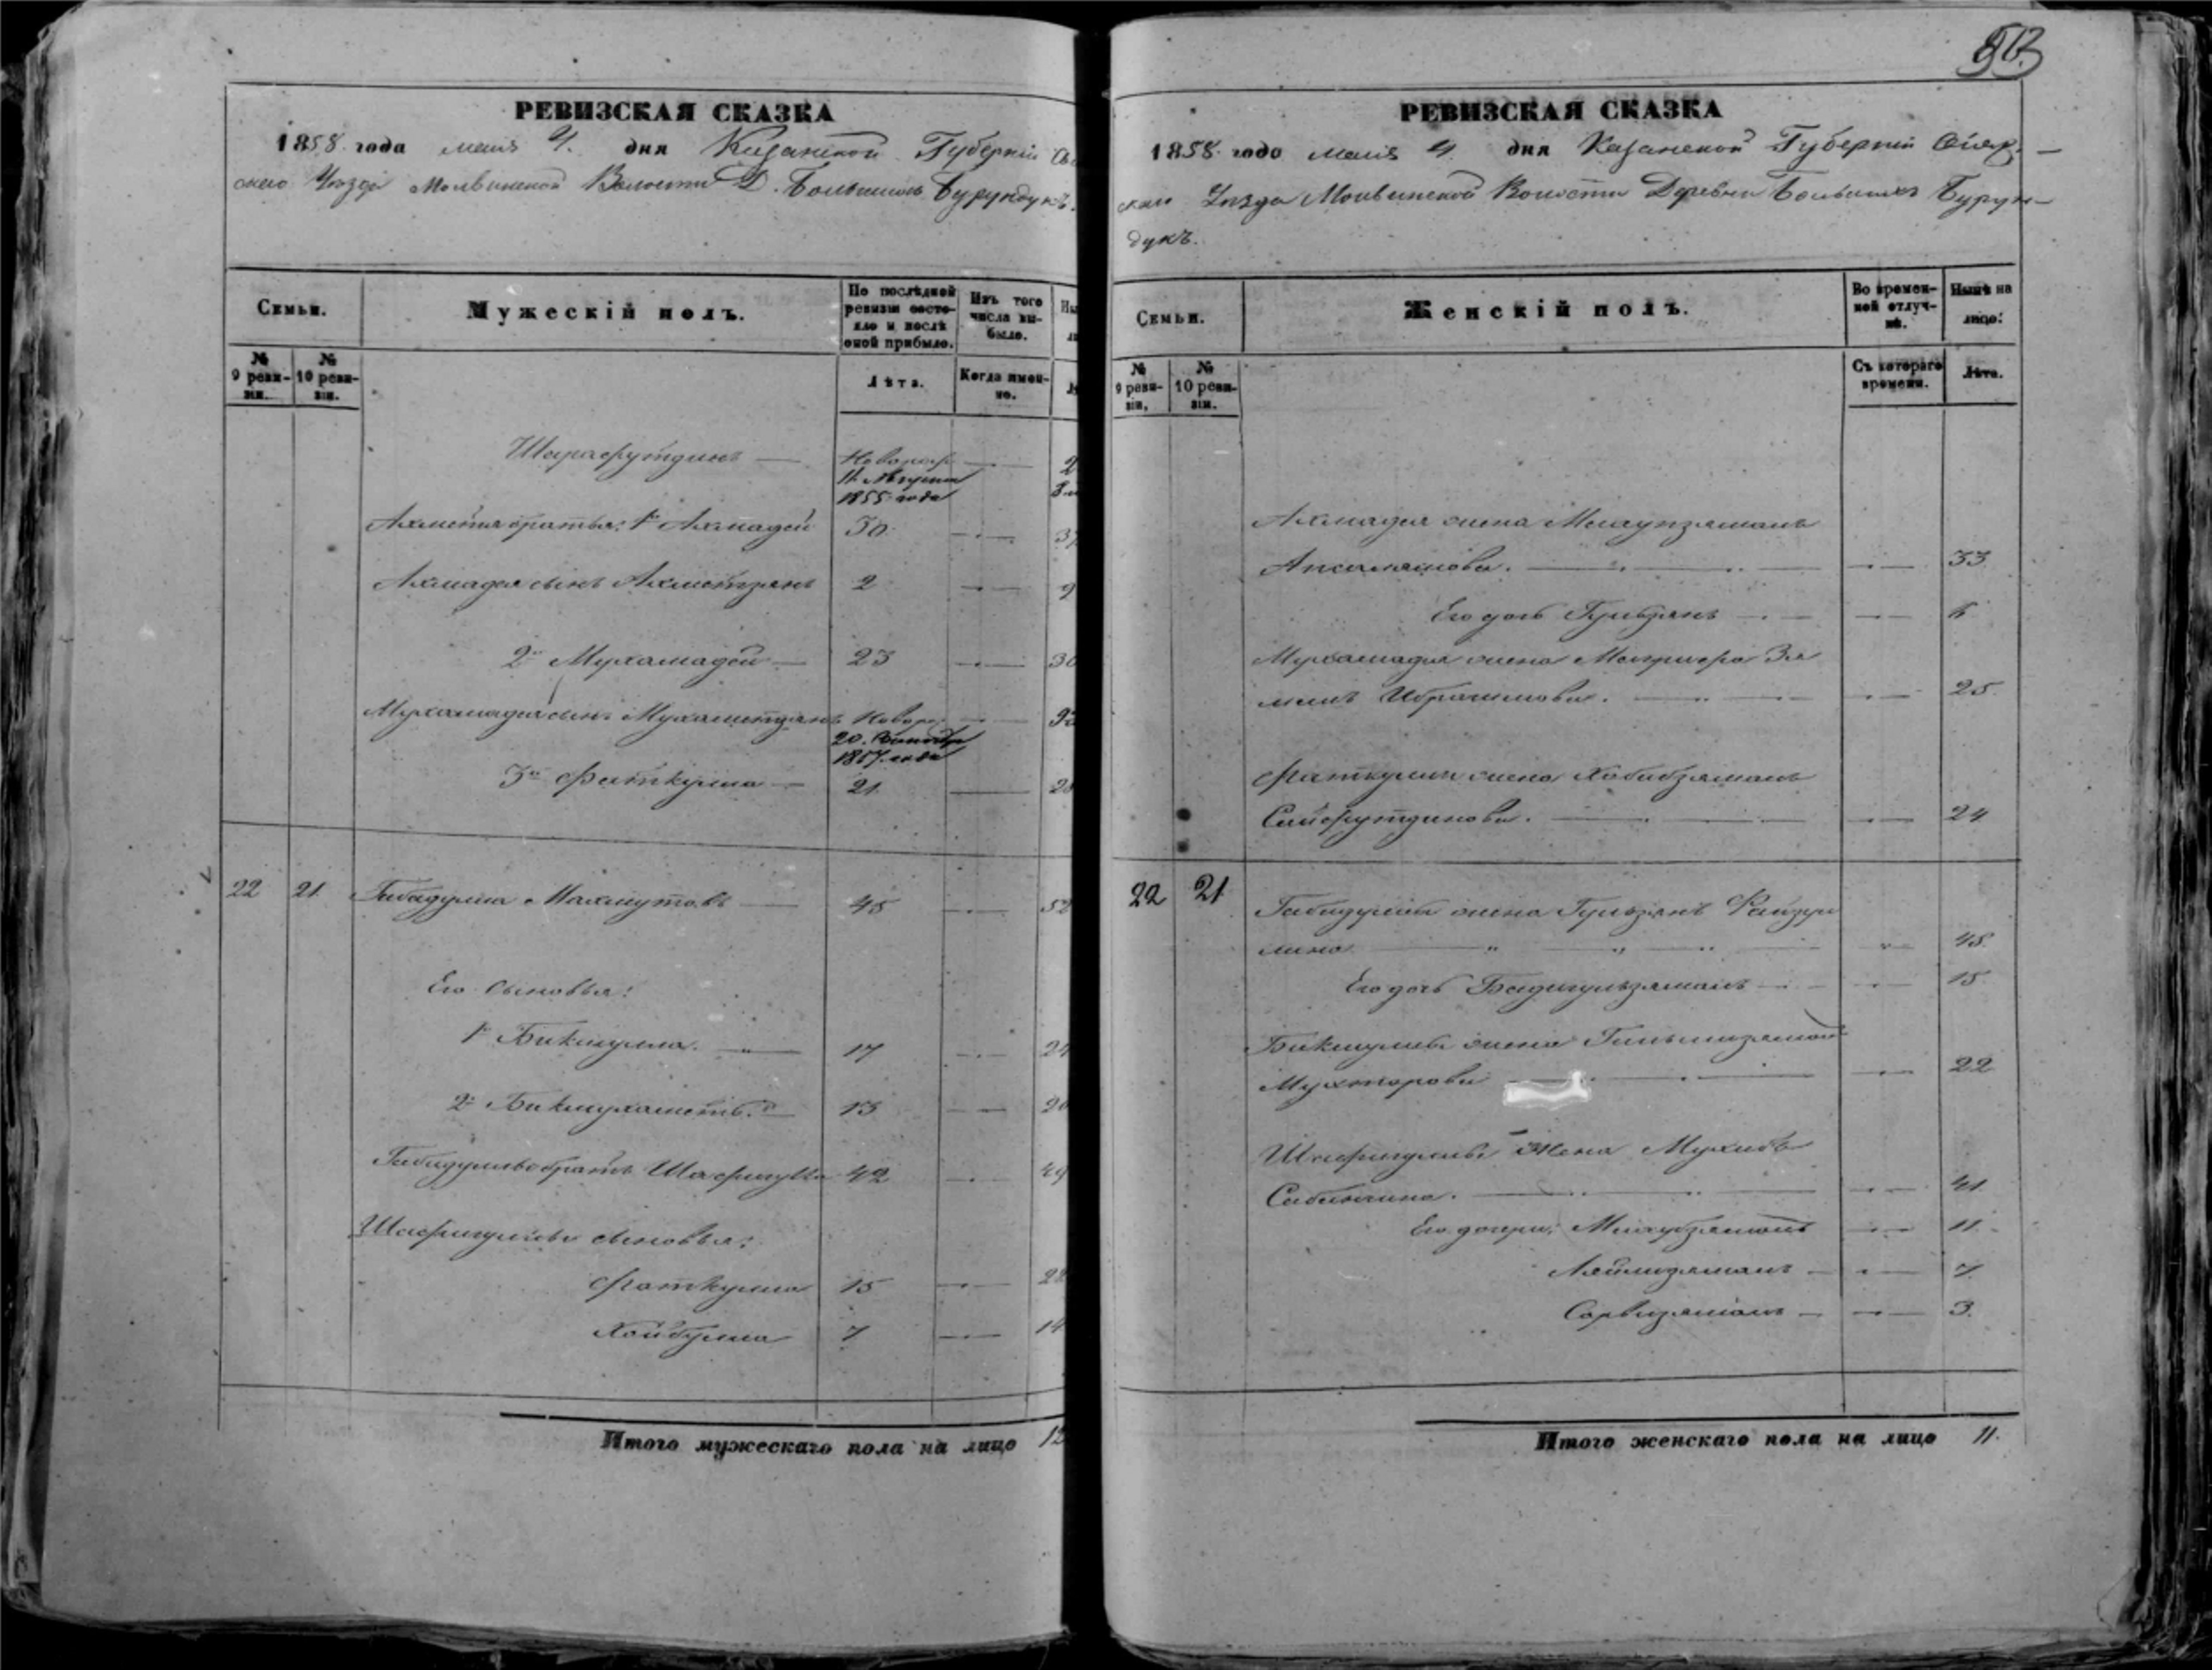 РЕВИЗСКАЯ СКАЗКА
1858 года маия 4 дня Казанской Губерніи
скаго Уѣзда Молвинской Волости Д. Большихъ Бурундукъ.
Семьи.
Мужескій полъ.
По послѣдней ревизіи состояло и послѣ оной прибыло.
Изъ того числа выбыло.
№ 9 ревизіи.
№ 10 ревизіи.
Лѣта.
Когда именно.
Шарафутдинъ — Новорож. — 2
11 Августа
1855 года
Ахметя братья: 1й Ахмадей 30 — 37
Ахмадея сынъ Ахметзянъ 2 — 9
2й Мухамадей — 23 — 30
Мухамадея сынъ Мухаметзянъ Новорож —
20
1857 года
3й Фаткулла — 21 — 28
22 21 Габадулла Махмутовъ — 45 — 52
Его сыновья:
1й Бикмулла. — 17 — 24
2й Бикмухаметь. — 13 — 20
Габидуллы братъ Шафигулла 42 — 49
Шафигуллы сыновья:
Фаткулла 15 — 22
Хайбулла 7 — 14
Итого мужескаго пола на лицо 12
РЕВИЗСКАЯ СКАЗКА
1858 года маия 4 дня Казанской Губерніи Свіяж—
скаго Уѣзда Молвинской Волости Деревни Большихъ Бурун—
дукъ.
Семьи.
Женскій полъ.
Во временной отлучкѣ.
Нынѣ на лицо.
№ 9 ревизіи,
№ 10 ревизіи.
Съ котораго времени.
Лѣта.
Ахмадея жена
— 33
Его дочь Гульзянъ —
Мухамадея жена Зя
малъ Ибрагимова. — 25
Фаткуллы жена Хабибзямалъ
Сайфутдинова. — 24
22 21 Габидуллы жена Гульзянъ Файзул
лина — 45
Его дочь Бадигульзямалъ — 15
Бикмуллы жена
Мухтарова — 22
Шафигуллы жена Мухиба
— 41
Его дочери: — 11
— 7
Сарвизямалъ — 3
Итого женскаго пола на лицо 11.